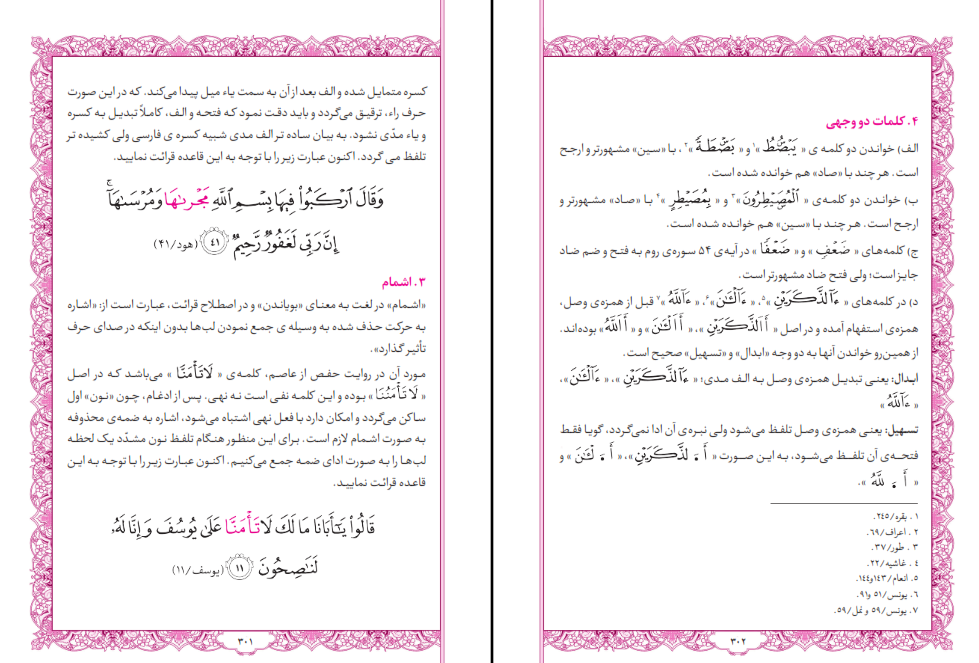 کسره متمایل شده و الف بعد از آن به سمت یاء میل پیدا می‌کند. که در این صورت
حرف راء، ترقیق می‌گردد و باید دقت نمود که فتحه و الف، کاملاً تبدیل به کسره
و یاء مدّی نشود. به بیان ساده تر الف مدی شبیه کسره ی فارسی ولی کشیده تر
تلفظ می گردد. اکنون عبارت زیر را با توجه به این قاعده قرائت نمایید.
وَقَالَ ٱرْكَبُوا۟ فِيهَا بِسْمِ ٱللَّهِ مَجْر۪ىٰهَا وَمُرْسَىٰهَآ ۚ
إِنَّ رَبِّى لَغَفُورٌ رَّحِيمٌ ﴿٤١﴾ (هود/۴۱)
۳. اشمام
«اشمام» در لغت به معنای «بویاندن» و در اصطلاح قرائت، عبارت است از: «اشاره
به حرکت حذف شده به وسیله ی جمع نمودن لب‌ها بدون اینکه در صدای حرف
تأثیر گذارد».
مورد آن در روایت حفص از عاصم، کلمه‌ی « لَا تَأْمَ۫نَّا » می‌باشد که در اصل
« لَا تَأْمَنُنَا » بوده و این کلمه نفی است نه نهی. پس از ادغام، چون «نون» اول
ساکن می‌گردد و امکان دارد با فعل نهی اشتباه می‌شود، اشاره به ضمه‌ی محذوفه
به صورت اشمام لازم است. برای این منظور هنگام تلفظ نون مشدّد یک لحظه
لب‌ها را به صورت ادای ضمه جمع می‌کنیم. اکنون عبارت زیر را با توجه به این
قاعده قرائت نمایید.
قَالُوا۟ يَـٰٓأَبَانَا مَا لَكَ لَا تَأْمَ۫نَّا عَلَىٰ يُوسُفَ وَإِنَّا لَهُۥ
لَنَـٰصِحُونَ ﴿١١﴾ (یوسف/۱۱)
۳۰۱
۴. کلمات دو وجهی
الف) خواندن دو کلمه ی « يَبْصُۜطُ »۱ و « بَصْۜطَةً »۲ ، با «سین» مشهورتر و ارجح
است. هر چند با «صاد» هم خوانده شده است.
ب) خواندن دو کلمه‌ی « ٱلْمُصَۣيْطِرُونَ »۳ و « بِمُصَيْطِرٍ »۴ با «صاد» مشهورتر و
ارجح است. هر چند با «سین» هم خوانده شده است.
ج) کلمه‌های « ضَعْفٍ » و « ضَعْفًا » در آیه‌ی ۵۴ سوره‌ی روم به فتح و ضم ضاد
جایز است؛ ولی فتح ضاد مشهورتر است.
د) در کلمه‌های « ءَآلذَّكَرَيْنِ »۵، « ءَآلْـَٔـٰنَ »۶، « ءَآللَّهُ »۷ قبل از همزه‌ی وصل،
همزه‌ی استفهام آمده و در اصل « أَاَلذَّكَرَيْنِ »، « أَاَلْـَٔـٰنَ » و « أَاَللَّهُ » بوده‌اند.
از همین‌رو خواندن آنها به دو وجه «ابدال» و «تسهیل» صحیح است.
ابدال: یعنی تبدیل همزه‌ی وصل به الف مدی؛ « ءَآلذَّكَرَيْنِ »، « ءَآلْـَٔـٰنَ »،
« ءَآللَّهُ »
تسهیل: یعنی همزه‌ی وصل تلفظ می‌شود ولی نبره‌ی آن ادا نمی‌گردد، گویا فقط
فتحه‌ی آن تلفظ می‌شود، به این صورت « أَ ـَ لذَّكَرَيْنِ »، « أَ ـَ لْـَٔـٰنَ » و
« أَ ـَ للَّهُ ».
۱. بقره/۲۴۵.
۲. اعراف/۶۹.
۳. طور/۳۷.
۴. غاشیه/۲۲.
۵. انعام/۱۴۳و۱۴۴.
۶. یونس/۵۱ و۹۱.
۷. یونس/۵۹ و نمل/۵۹.
۳۰۲